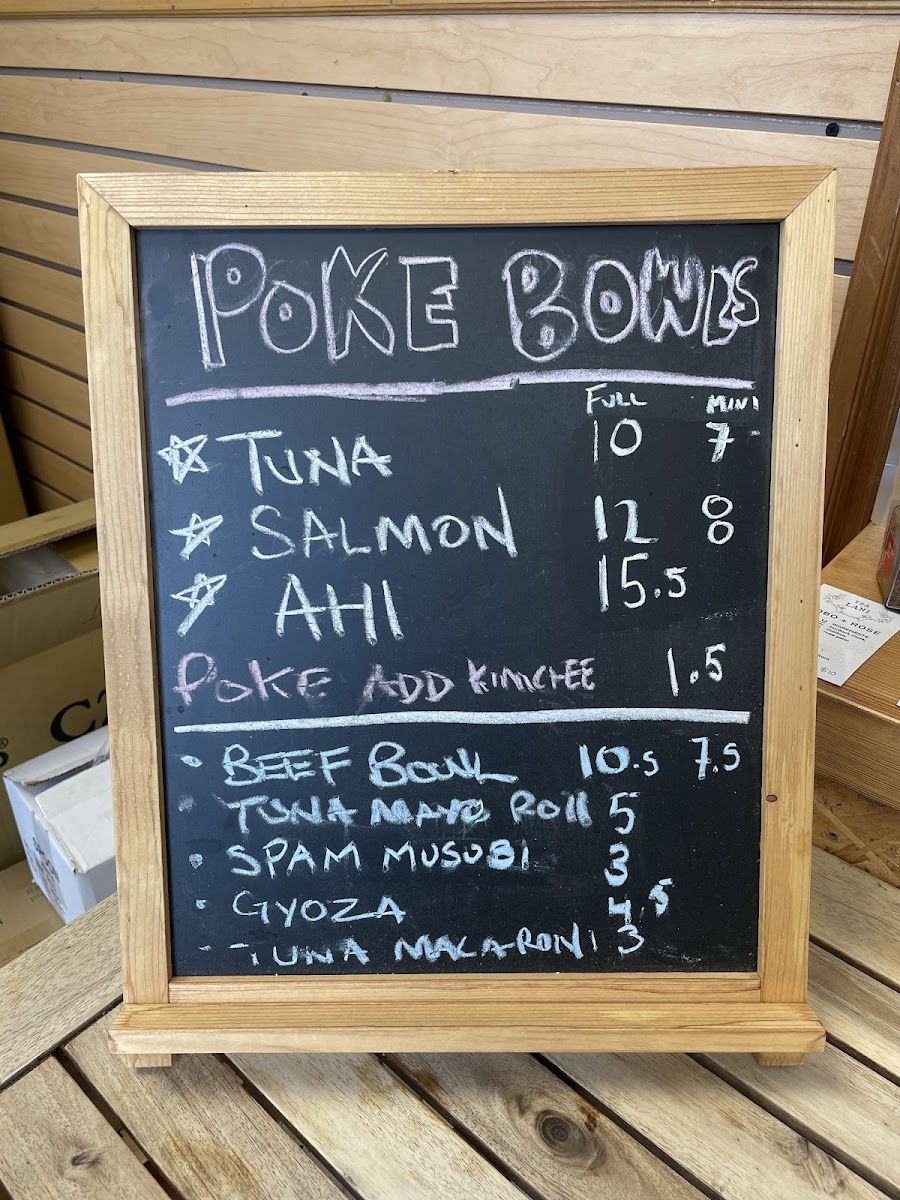 POKE BOWLS
FULL MINI
TUNA 10 7
SALMON 12 8
AHI 15.5
POKE ADD KIMCHEE 1.5
BEEF BOWL 10.5 7.5
TUNA MAYO ROll 5
SPAM MUSUBI 3
GYOZA 4.5
TUNA MACARONI 3
FRA
LANI
OBO + ROSE
INGREDIENTS
$10